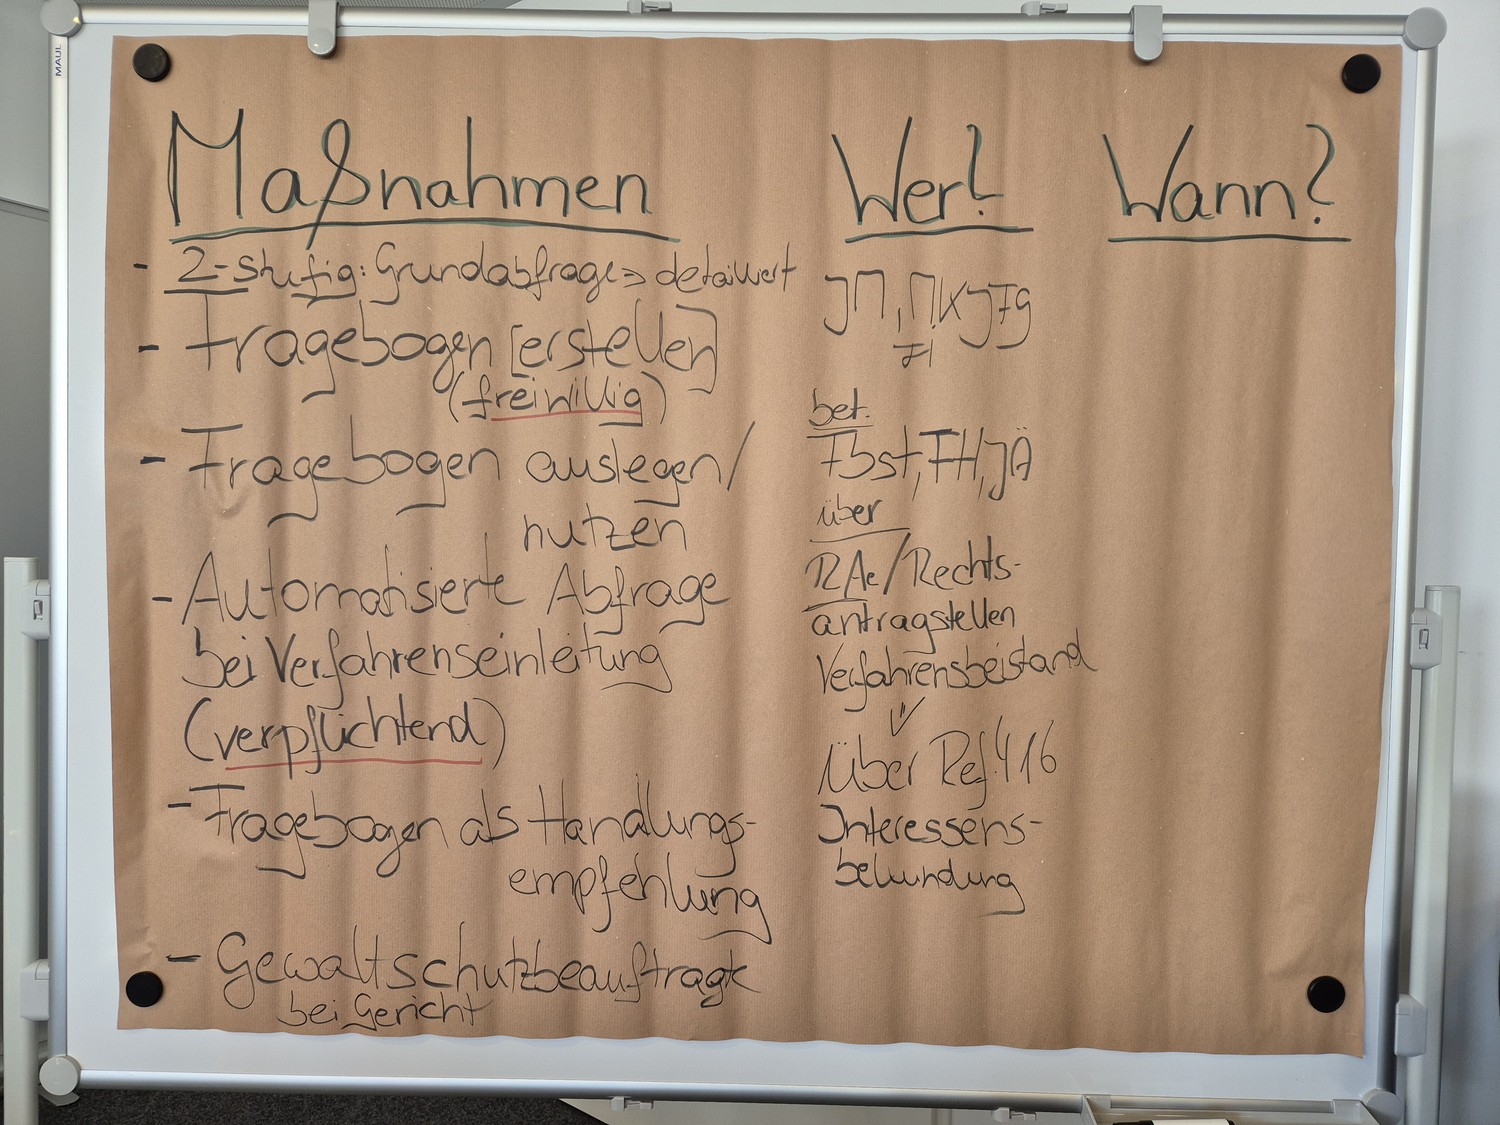 MAUL
Maßnahmen
- 2-stufig: Grundabfrage => detailliert
- Fragebogen [erstellen]
(freiwillig)
- Fragebogen auslegen/
nutzen
- Automatisierte Abfrage
bei Verfahrenseinleitung
(verpflichtend)
- Fragebogen als Handlungs-
empfehlung
- Gewaltschutzbeauftragte
bei Gericht
Wer?
JM,
bet.
Fbst, FH, JÄ
über
RAe/Rechts-
antragstellen
Verfahrensbeistand
über Ref. 416
Interessens-
bekundung
Wann?